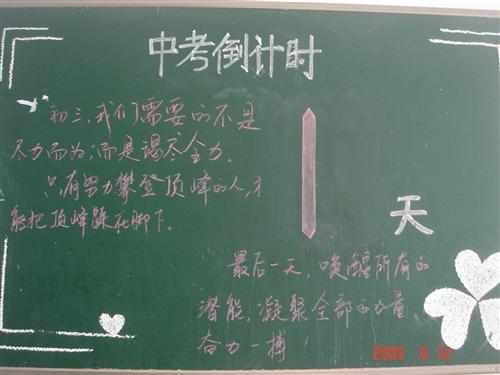 中考倒计时
初三,我们需要的不是
尽力而为,而是竭尽全力。
只有努力攀登顶峰的人,才
能把顶峰踩在脚下。
1
天
最后一天,唤醒所有的
潜能,凝聚全部的力量,
奋力一搏!